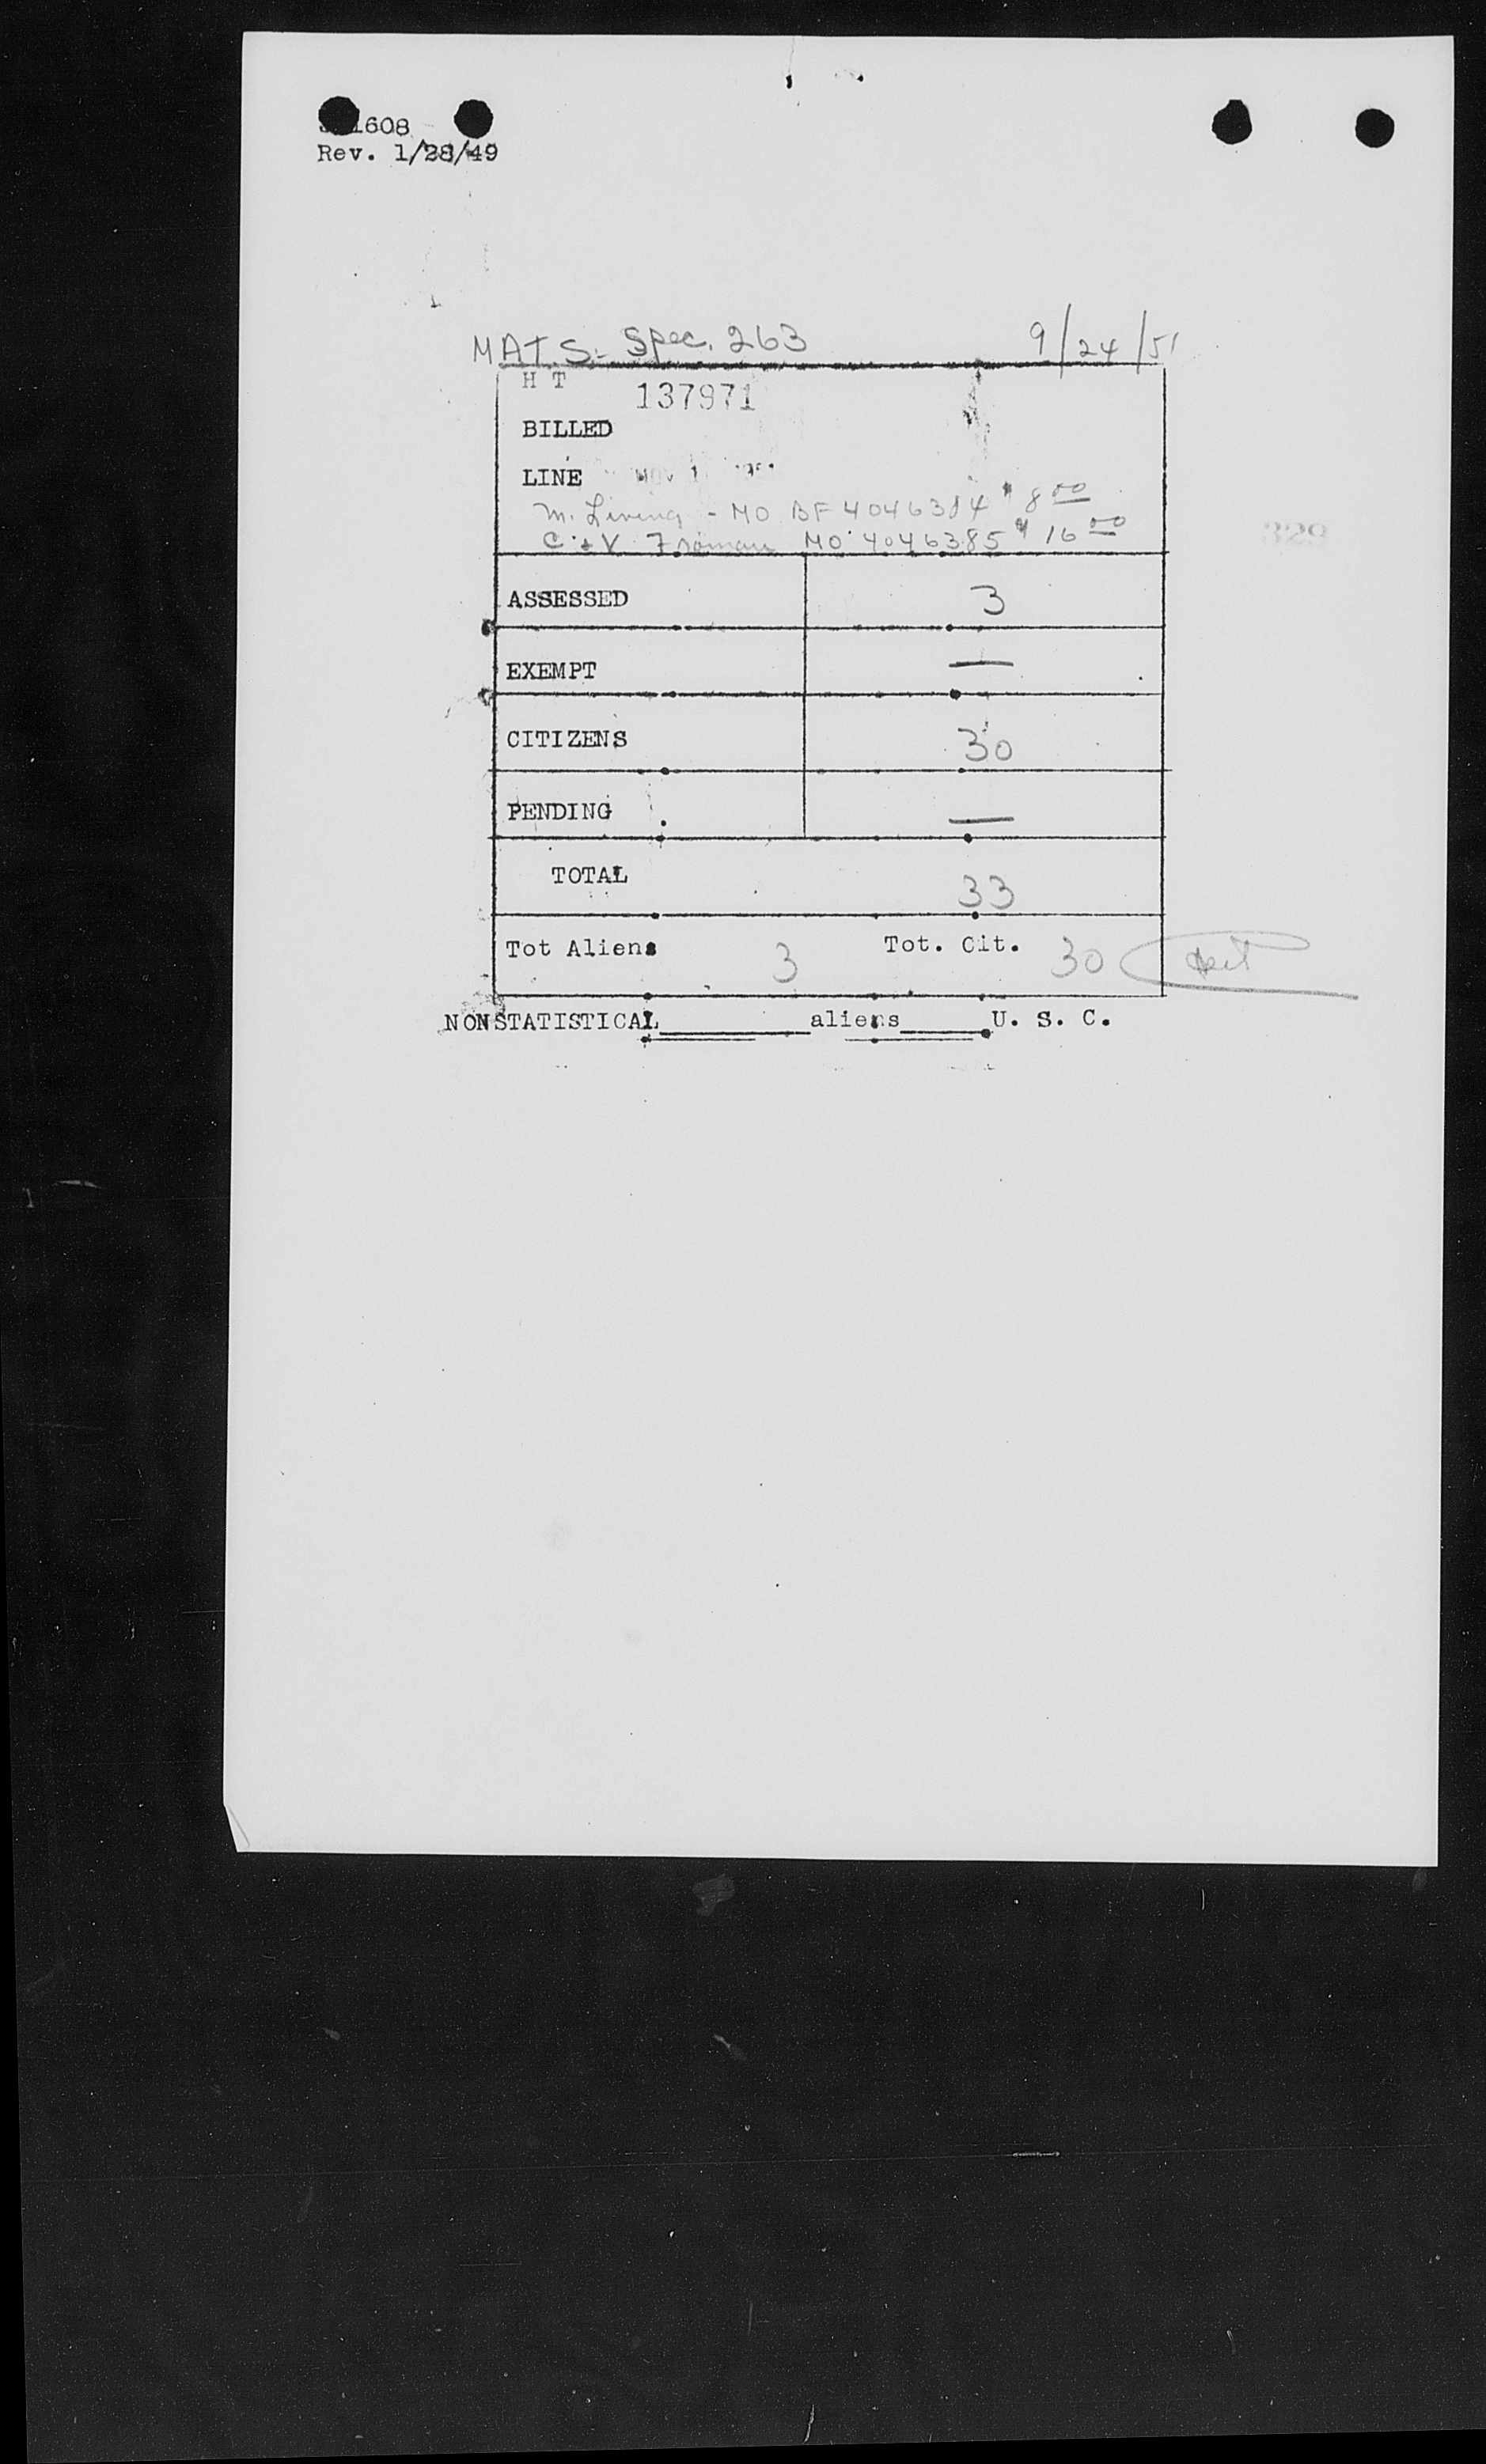 1608
Rev. 1/28/49
MATS- Spec. 263 9/24/51
H T 137971
BILLED
LINE NOV 1
M. - MO BF 4046384 $ 8 00
C & V Froman MO 4046385 $ 16 00
ASSESSED 3
EXEMPT —
CITIZENS 30
PENDING —
TOTAL 33
Tot Aliens 3 Tot. Cit. 30
NONSTATISTICAL______aliens______U. S. C.